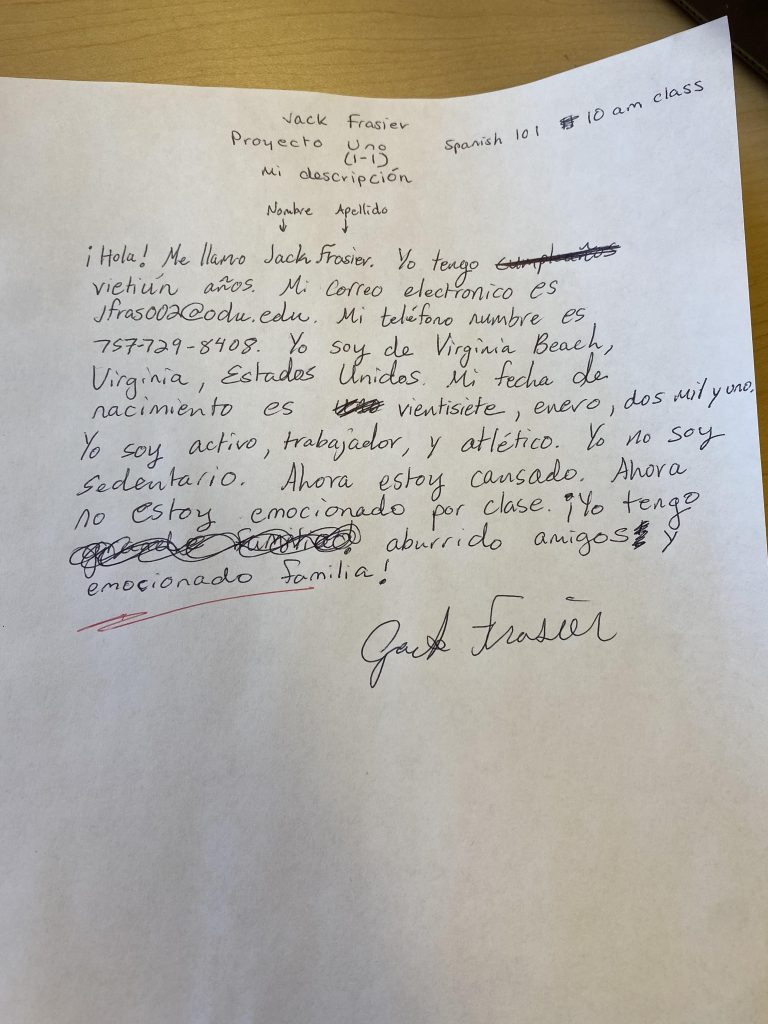 Jack Frasier
Spanish 101 10 am class
Proyecto Uno
(1-1)
Mi descripción
Nombre Apellido
¡Hola! Me llamo Jack Frasier. Yo tengo cumpleaños
vietiún años. Mi correo electronico es
jfras002@odu.edu. Mi teléfono numbre es
757-729-8408. Yo soy de Virginia Beach,
Virginia, Estados Unidos. Mi fecha de
nacimiento es vientisiete, enero, dos mil y uno.
Yo soy activo, trabajador, y atlético. Yo no soy
sedentario. Ahora estoy cansado. Ahora
no estoy emocionado por clase. ¡Yo tengo
aburrido amigos y
emocionado familia!
Jack Frasier